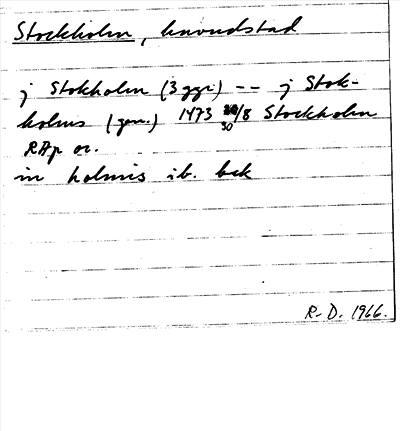 Stockholm, huvudstad
j Stokholm (3 ggr) -- j Stok-
holms (gen.) 1473 30/8 Stockholm
RAp or.
in holmis ib. bak
R.D. 1966.